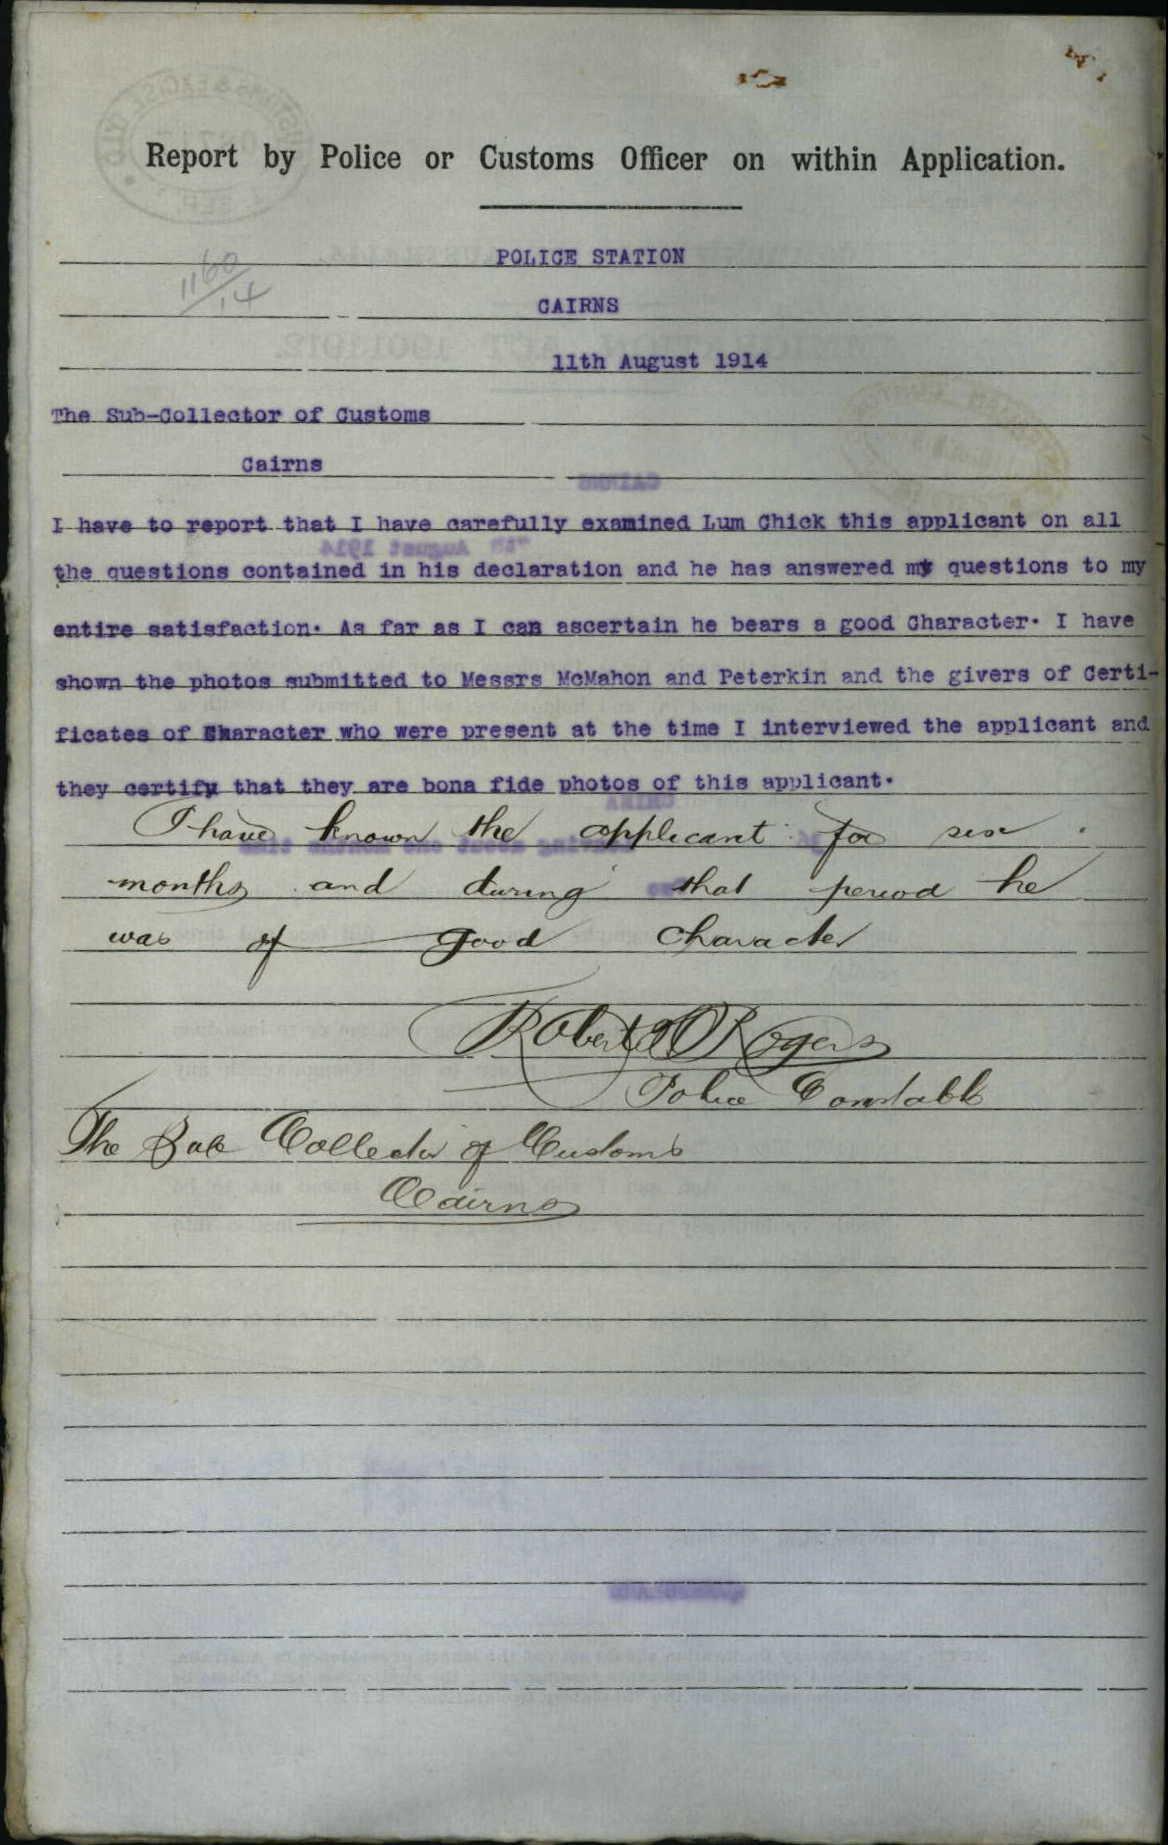 Report by Police or Customs Officer on within Application.
1160/14
POLICE STATION
CAIRNS
11th August 1914
The Sub-Collector of Customs
Cairns
I have to report that I have carefully examined Lum Chick this applicant on all
the questions contained in his declaration and he has answered my questions to my
entire satisfaction. As far as I can ascertain he bears a good Character. I have
shown the photos submitted to Messrs McMahon and Peterkin and the givers of Certi-
ficates of Character who were present at the time I interviewed the applicant and
they certify that they are bona fide photos of this applicant.
I have known the applicant for six
months and during that period he
was of good character
Robert Rogers
Police Constable
The Sub Collector of Customs
Cairns